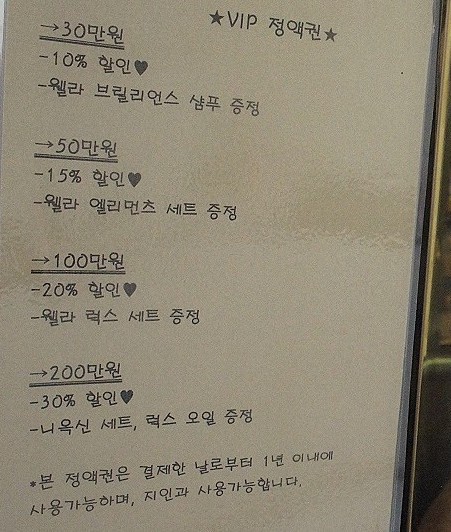 ★VIP 정액권★
→30만원
-10% 할인♥
-웰라 브릴리언스 샴푸 증정
→50만원
-15% 할인♥
-웰라 엘리먼츠 세트 증정
→100만원
-20% 할인♥
-웰라 럭스 세트 증정
→200만원
-30% 할인♥
-니옥신 세트, 럭스 오일 증정
*본 정액권은 결제한 날로부터 1년 이내에
사용가능하며, 지인과 사용가능합니다.